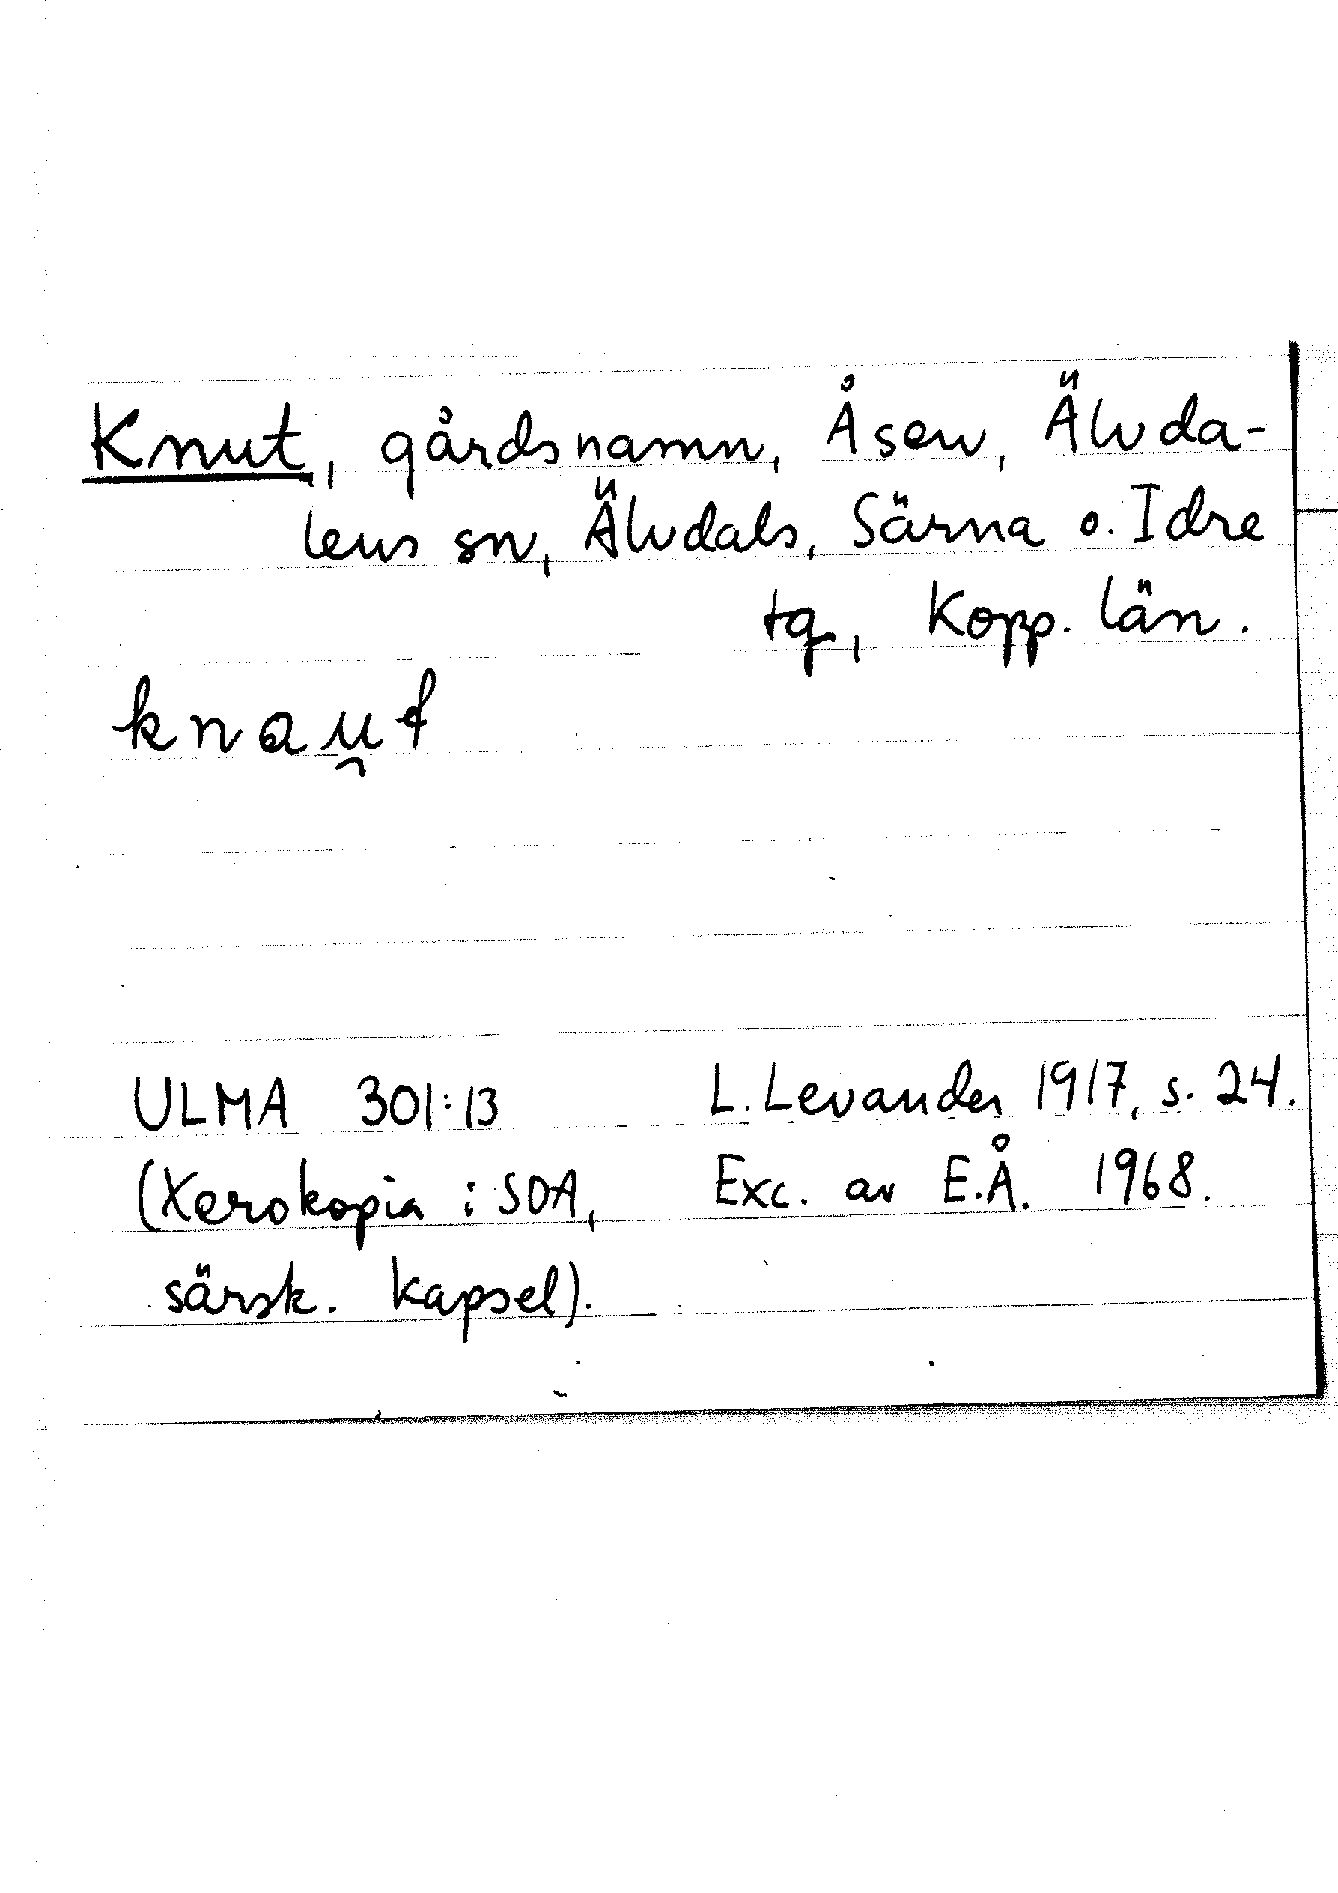 Knut, gårdsnamn, Åsen, Älvda-
lens sn, Älvdals, Särna o. Idre
tg, Kopp. län.
knau̯t
ULMA 301:13 L. Levander 1917, s. 24.
(Xerokopia i SOA, Exc. av E.Å. 1968.
särsk. kapsel).